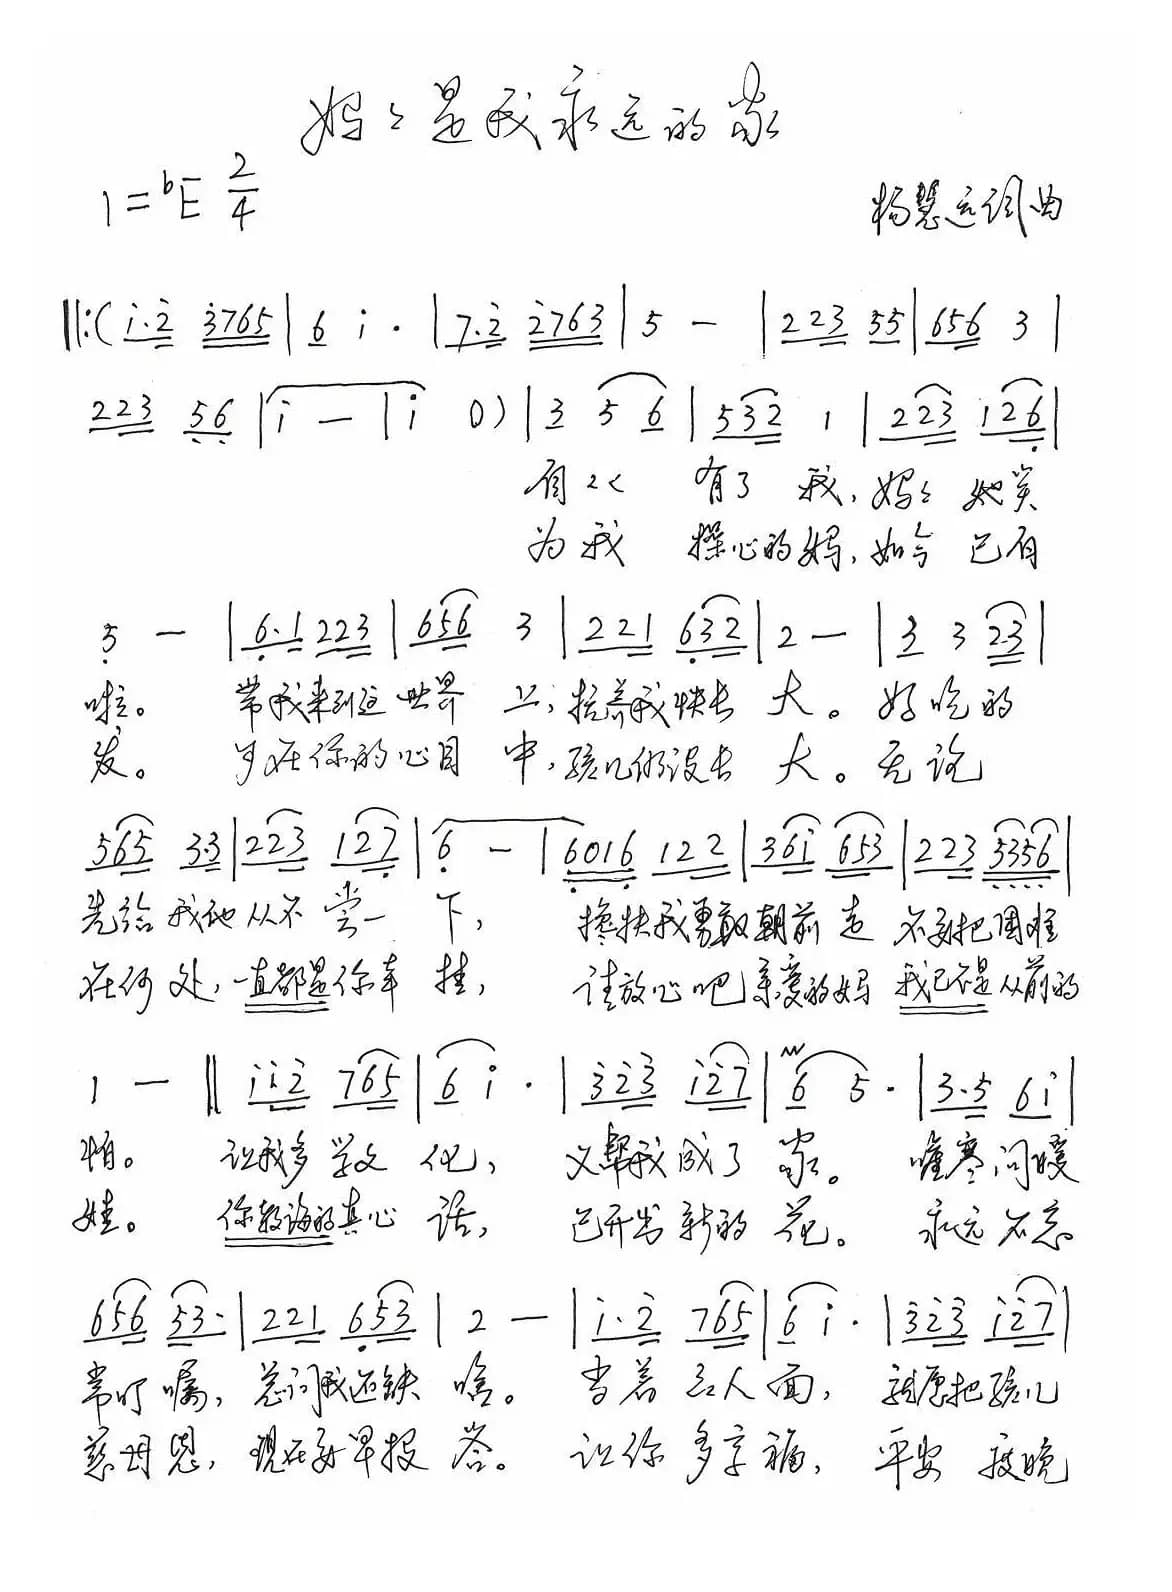 妈々是我永远的家
1=bE 2/4
杨慧远词曲
‖:( i·2 3765 | 6 i · | 7·2 2763 | 5 — | 223 55 | 656 3 |
223 56 | i — | i 0) | 3 5 6 | 532 1 | 223 126 |
自从 有了 我, 妈々 她笑
为我 操心的妈, 如今 已有
5 — | 6·1 223 | 656 3 | 221 632 | 2 — | 3 3 23 |
啦。 带我来到这世界 上; 抚养我快长 大。 好吃的
发。 在你的心目 中, 孩儿仍没长 大。 无论
565 33 | 223 127 | 6 — | 6016 122 | 36i 653 | 223 5356 |
先给我她从不 尝一 下, 搀扶我勇敢朝前 走 不要把困难
在何 处, 一直都是你牵 挂, 请放心吧亲爱的妈 我已不是从前的
1 — ‖ ii2 765 | 6 i · | 323 i27 | 6 5 · | 3·5 6i |
怕。 让我多学文 化, 又帮我成了 家。 嘘寒问暖
娃。 你教诲的真心 话, 已开出新的 花。 永远不忘
656 53· | 221 653 | 2 — | i·2 765 | 6 i · | 323 i27 |
常叮嘱, 总问我还缺 啥。 当着 人面, 就愿把孩儿
慈母恩, 现在要早报 答。 让你 多享福, 平安 度晚